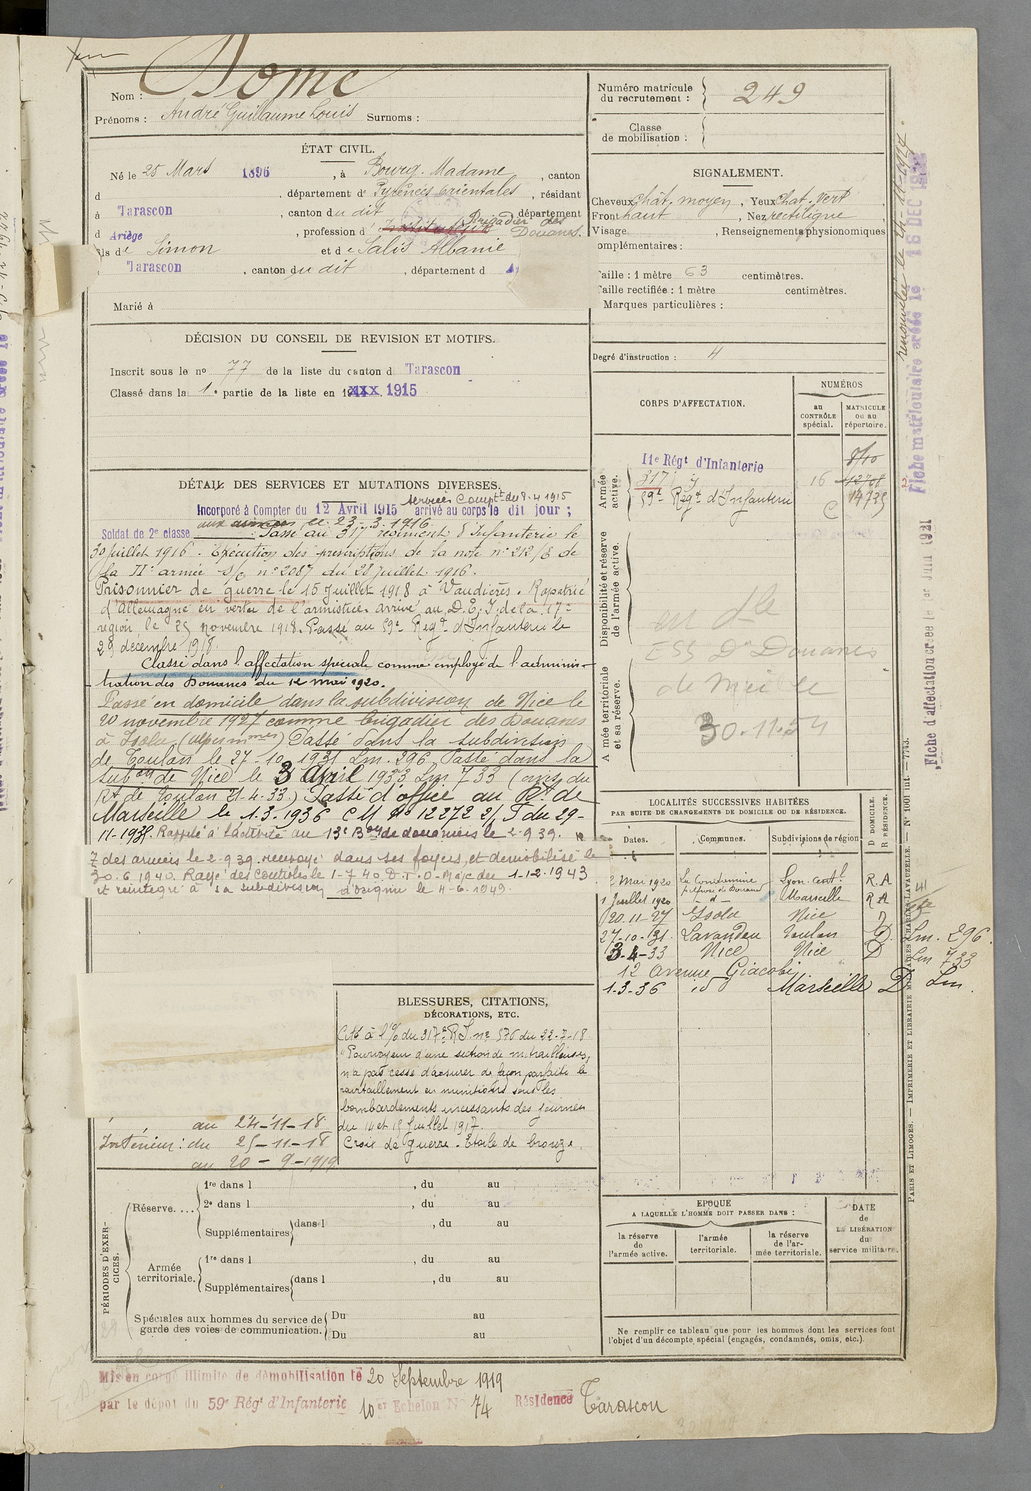 Nom : Dome
Prénoms : André Guillaume Louis Surnoms :
Numéro matricule du recrutement : 249
Classe de mobilisation :
ÉTAT CIVIL.
Né le 25 Mars 1896, à Bourg-Madame, canton
d , département d Pyrénées orientales, résidant
à Tarascon, canton du dit, département
d Ariège, profession d Brigadier des Douanes
ls de Simon et de Salis Albanie
Tarascon, canton du dit, département d
Marié à
SIGNALEMENT.
Cheveux chât. moyen, Yeux chat. vert
Front haut, Nez rectiligne,
Visage , Renseignements physionomiques
omplémentaires :
Taille : 1 mètre 63 centimètres.
Taille rectifiée : 1 mètre centimètres.
Marques particulières :
Degré d'instruction : 4
DÉCISION DU CONSEIL DE REVISION ET MOTIFS.
Inscrit sous le no 77 de la liste du canton d Tarascon
Classé dans la 1e partie de la liste en 19 1915
CORPS D'AFFECTATION.
NUMÉROS
au CONTRÔLE spécial.
MATRICULE ou au répertoire.
Armée active.
11e Régt d'Infanterie
317
59e Régt d'Infanterie
16
14735
Disponibilité et réserve de l'armée active.
A mée territoriale et sa réserve.
Douanes
30.11.54
DÉTAIL DES SERVICES ET MUTATIONS DIVERSES.
services Compt. du 8.4 1915
Incorporé à Compter du 12 Avril 1915 arrivé au corps le dit jour ;
Soldat de 2e classe aux armées le 23-3.1916.
Passé au 317 régiment d'Infanterie le
30 juillet 1916. Exécution des prescriptions de la note no 212/E de
la IIe armée S/C no 2087 du 28 juillet 1916.
Prisonnier de guerre le 15 juillet 1918 à Vaudières. Rapatrié
d'Allemagne en vertu de l'armistice arrivé au D.C.I. de la 17e
région le 25 novembre 1918. Passé au 59e Régt d'Infanterie le
29 décembre 1918.
Classé dans l'affectation spéciale comme employé de l'adminis-
tration des Douanes du 12 mai 1920.
Passe en domicile dans la subdivision de Nice le
20 novembre 1927 comme brigadier des Douanes
à Isola (Alpes mmes) Passé dans la subdivision
de Toulon le 27-10-1931 Lm. 296. Passé dans la
subon de Nice le 3 Avril 1933 Lm 733 (avis du
Rt de Toulon 21-4-33.) Passé d'office au Bt de
Marseille le 1-3-1936 CM No 12272 2/I du 29-
11-1935 Rappelé à l'activité au 13e Bon de douaniers le 2-9 39.
des armées le 2.9.39. renvoyé dans ses foyers et démobilisé le
30.6.1940. Rayé des contrôles le 1-7.40. 1-12.1943
et réintégré à sa subdivision d'origine le 4-6.1943.
LOCALITÉS SUCCESSIVES HABITÉES
PAR SUITE DE CHANGEMENTS DE DOMICILE OU DE RÉSIDENCE.
Dates. Communes. Subdivisions de région D. DOMICILE. R. RÉSIDENCE.
2 Mai 1920 La Condamine Lyon cent. R.A
1 Juillet 1920 -d- Marseille R A
20.11-27 Isola Nice D
27-10-31 Lavandou Toulon D Lm. 296.
3-4-33 Nice Nice D Lm 733
12 Avenue Giacobi
1-3-36 id Marseille D Lm.
BLESSURES, CITATIONS,
DÉCORATIONS, ETC.
Cité à l'O/ du 317e R.I. no 576 du 22-7-18
"Pourvoyeur d'une section de mitrailleuses,
n'a pas cessé d'assurer de façon parfaite le
ravitaillement en munitions sous les
bombardements incessants des journées
du 14 et 15 Juillet 1917.
Croix de guerre - Etoile de bronze.
au 24-11-18
Intérieur : du 25-11-18
au 20-9-1919
PÉRIODES D'EXERCICES.
Réserve....
1re dans l , du au
2e dans l , du au
Supplémentaires dans l , du au
Armée territoriale.
1re dans l , du au
Supplémentaires dans l , du au
Spéciales aux hommes du service de garde des voies de communication.
Du au
Du au
EPOQUE
A LAQUELLE L'HOMME DOIT PASSER DANS :
la réserve de l'armée active.
l'armée territoriale.
la réserve de l'armée territoriale.
DATE de LA LIBÉRATION du service militaire.
Ne remplir ce tableau que pour les hommes dont les services font
l'objet d'un décompte spécial (engagés, condamnés, omis, etc.).
Mis en congé illimité de démobilisation le 20 Septembre 1919
par le dépôt du 59e Régt d'Infanterie 10er Echelon No 74 Résidence Tarascon
Fiche matriculaire créée le 16 DEC
Fiche d'affectation créée le 1er Juin 1921
PARIS ET LIMOGES. — IMPRIMERIE ET LIBRAIRIE MILITAIRES CHARLES-LAVAUZELLE. — No 1001 int. — 7743.